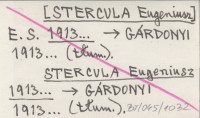 [STERCULA Eugeniusz]
E. S. 1913... → GÁRDONYI
1913... (tłum.)
STERCULA Eugeniusz
1913... → GÁRDONYI
1913... (tłum.) 80/045/1032